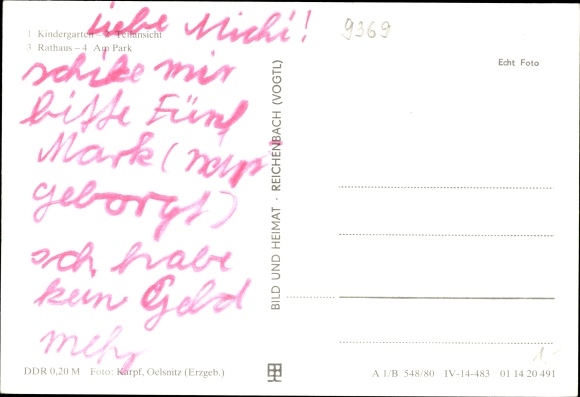 liebe Michi!
schike mir
bitte Fünf
Mark (
geborgt)
ich habe
kein Geld
mehr
1 Kindergarten – 2 Teilansicht
3 Rathaus – 4 Am Park
9369
Echt Foto
BILD UND HEIMAT · REICHENBACH (VOGTL)
1.-
DDR 0,20 M Foto: Karpf, Oelsnitz (Erzgeb.)
A 1/B 548/80 IV-14-483 01 14 20 491